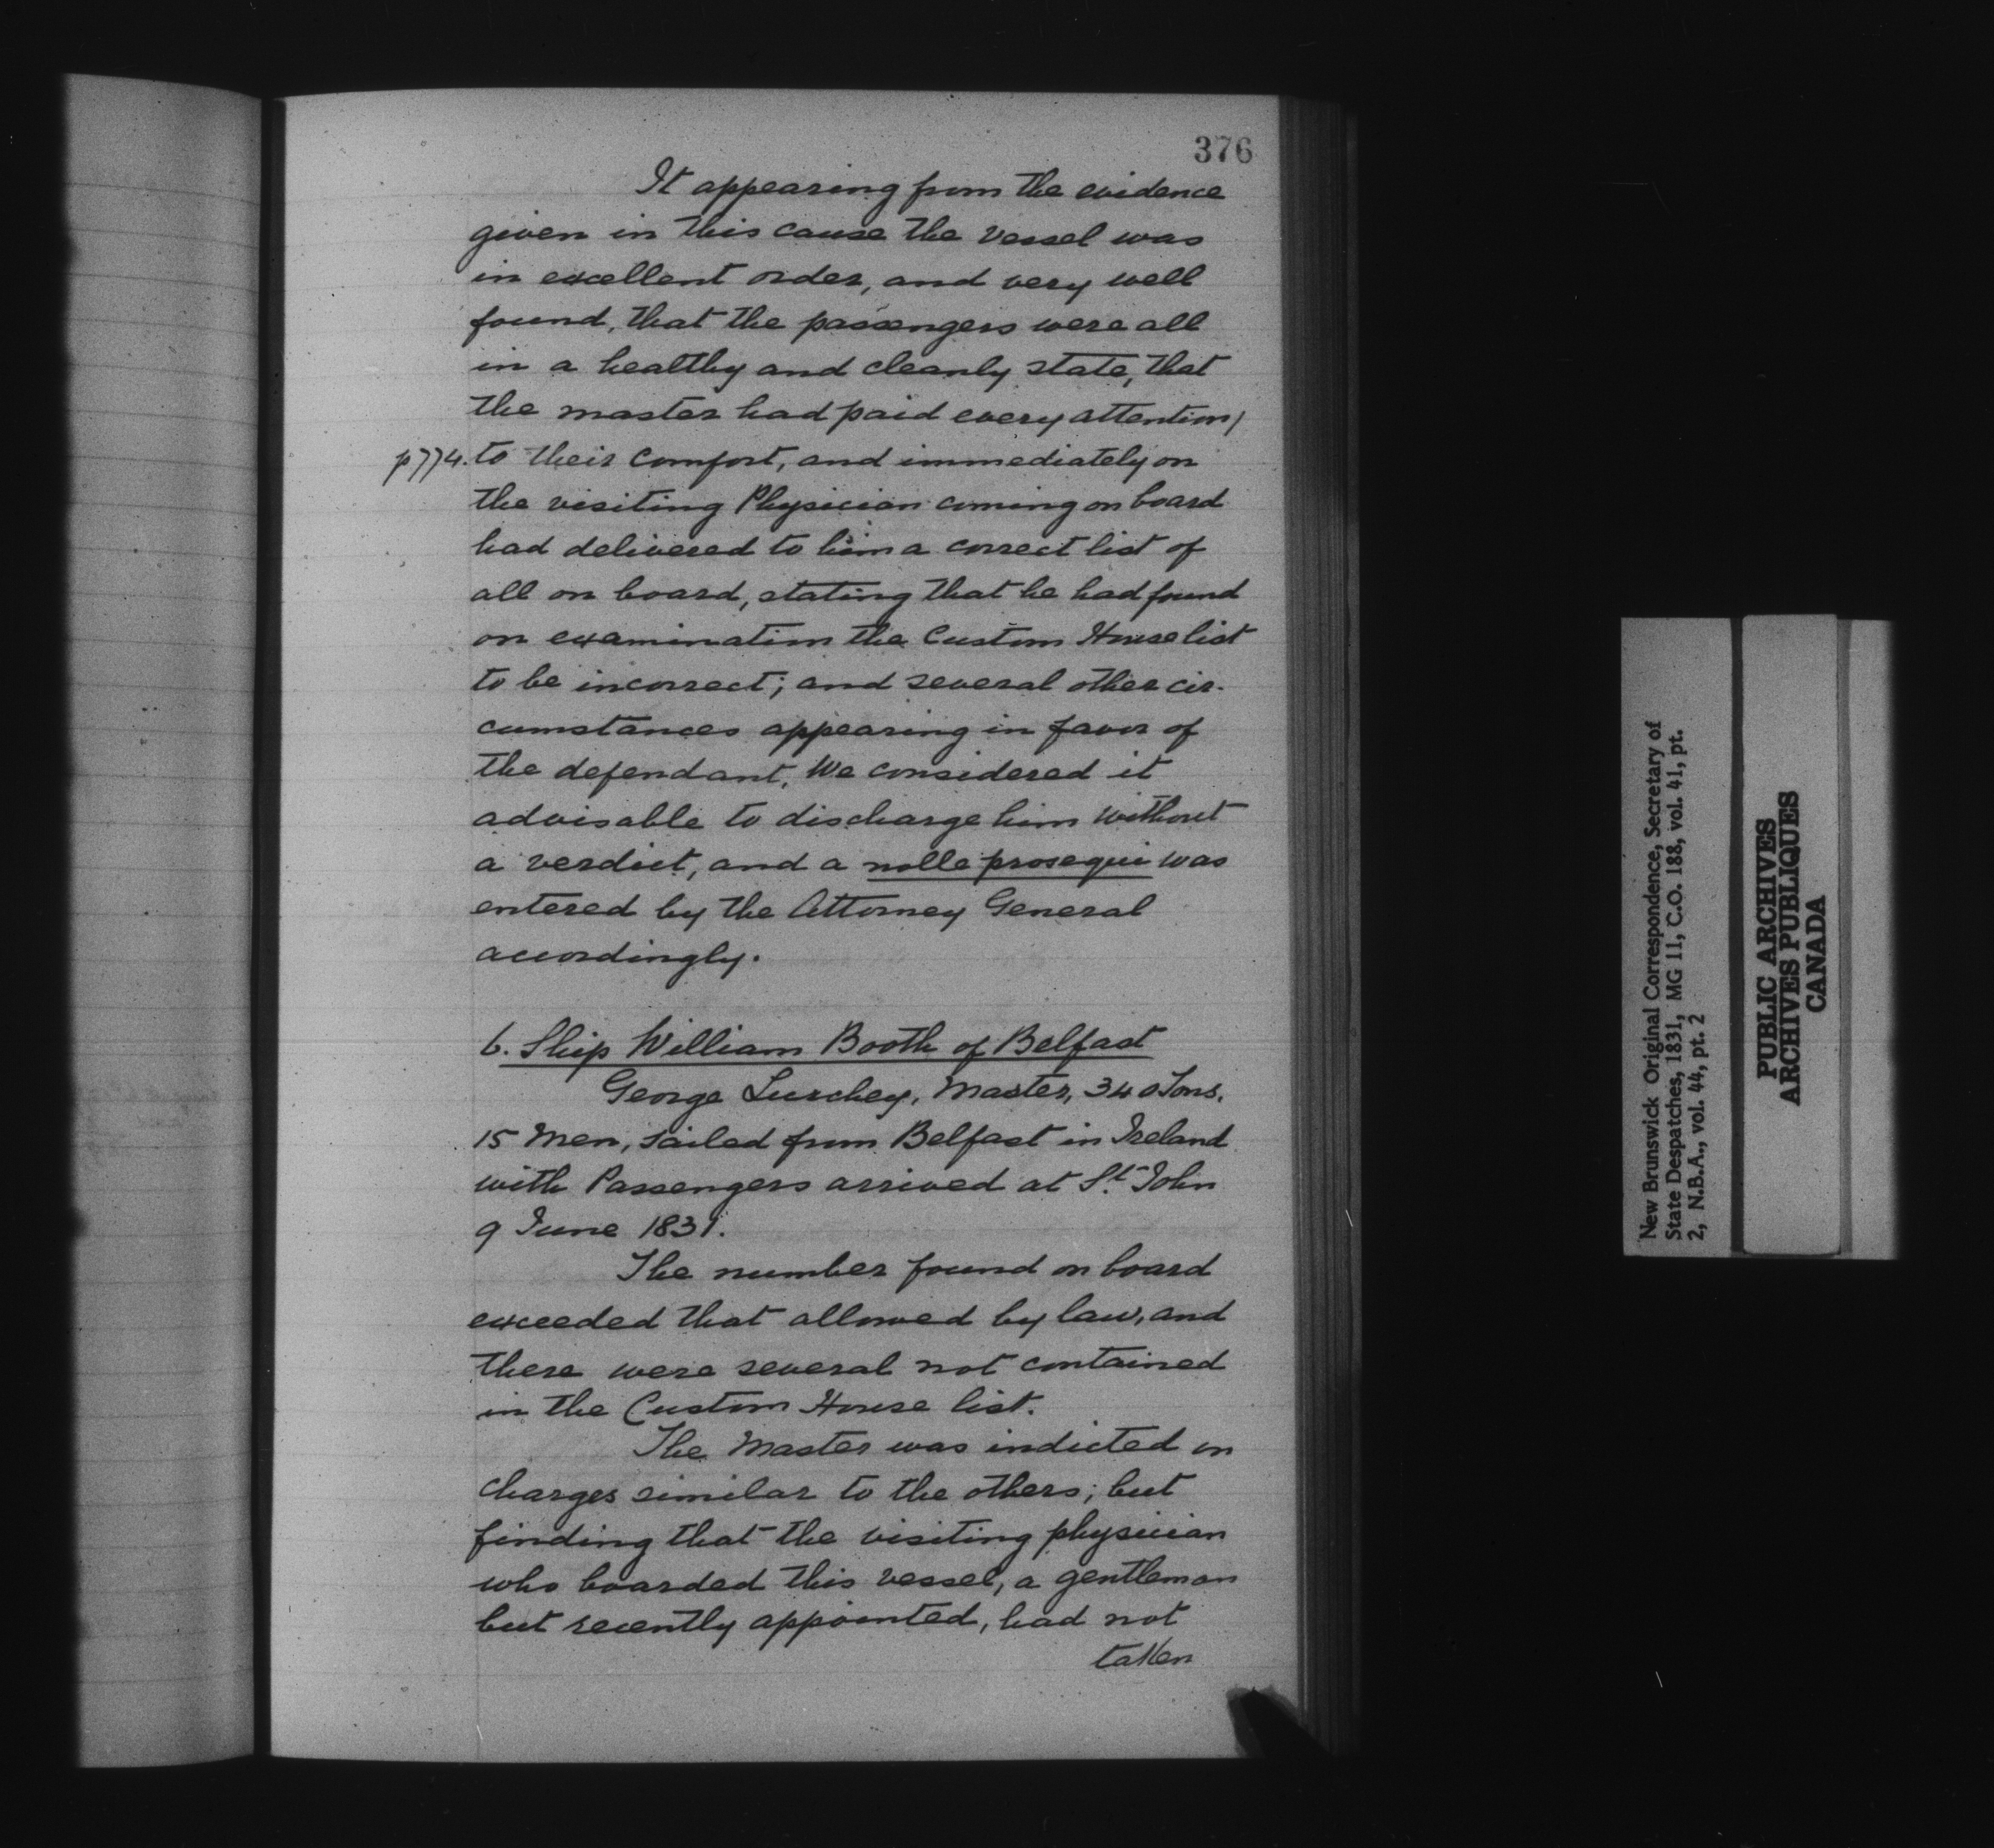 376
It appearing from the evidence
given in this cause the vessel was
in excellent order, and very well
found, that the passengers were all
in a healthy and cleanly state, that
the master had paid every attention/
p774. to their comfort, and immediately on
the visiting Physician coming on board
had delivered to him a correct list of
all on board, stating that he had found
on examination the Custom House list
to be incorrect; and several other cir-
cumstances appearing in favor of
the defendant, We considered it
advisable to discharge him without
a verdict, and a nolle prosequi was
entered by the Attorney General
accordingly.
6. Ship William Booth of Belfast
George Luschey, Master, 340 Tons,
15 Men, sailed from Belfast in Ireland
with Passengers arrived at St. John
9 June 1831.
The number found on board
exceeded that allowed by law, and
there were several not contained
in the Custom House list.
The Master was indicted on
charges similar to the others; but
finding that the visiting physician
who boarded this vessel, a gentleman
but recently appointed, had not
taken
New Brunswick Original Correspondence, Secretary of
State Despatches, 1831, MG 11, C.O. 188, vol. 41, pt.
2, N.B.A., vol. 44, pt. 2
PUBLIC ARCHIVES
ARCHIVES PUBLIQUES
CANADA